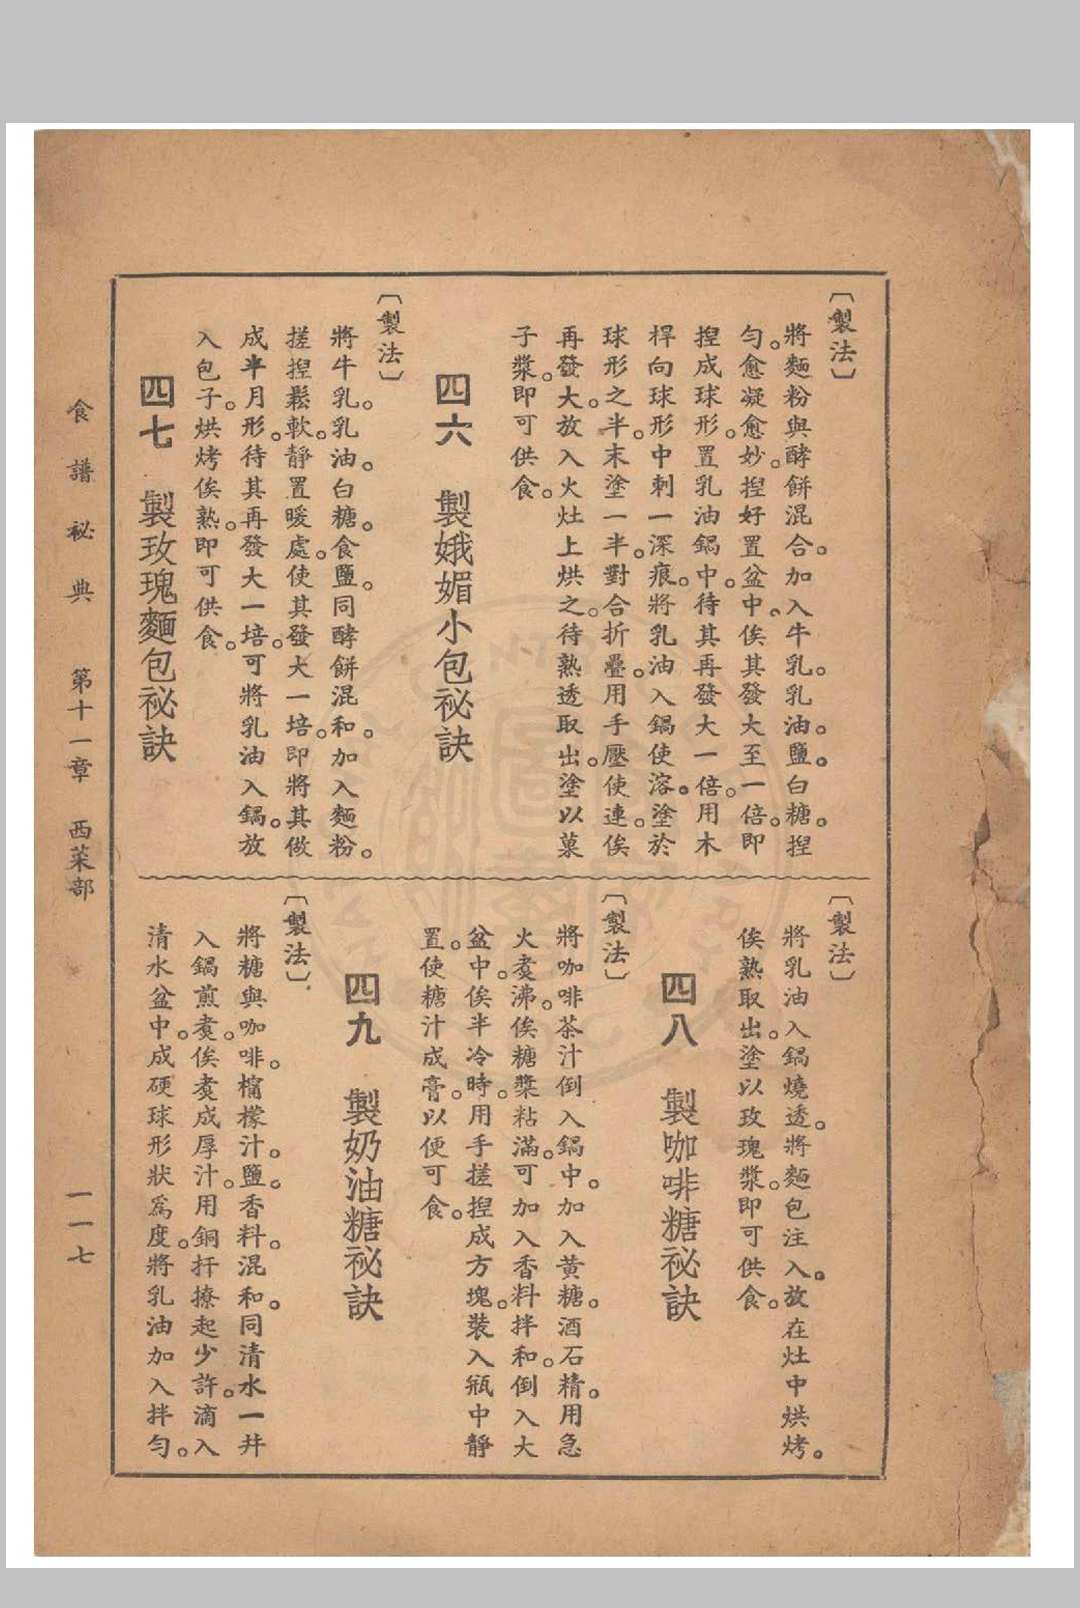 〔製法〕
將麵粉與酵餅混合。加入牛乳。乳油。鹽。白糖。揑
勻。愈凝愈妙。揑好置盆中。俟其發大至一倍。即
揑成球形。置乳油鍋中。待其再發大一倍。用木
桿向球形中刺一深痕。將乳油入鍋使溶。塗於
球形之半。末塗一半。對合折疊。用手壓使連。俟
再發大。放入火灶上烘之。待熟透取出。塗以菓
子漿。即可供食。
四六　製娥媚小包祕訣
〔製法〕
將牛乳。乳油。白糖。食鹽。同酵餅混和。加入麵粉。
搓揑鬆軟。靜置暖處。使其發大一培。即將其做
成半月形。待其再發大一培。可將乳油入鍋。放
入包子。烘烤俟熟。即可供食。
四七　製玫瑰麵包祕訣
〔製法〕
將乳油入鍋燒透。將麵包注入。放在灶中烘烤。
俟熟取出。塗以玫瑰漿。即可供食。
四八　製咖啡糖祕訣
〔製法〕
將咖啡茶汁倒入鍋中。加入黃糖。酒石精。用急
火煑沸。俟糖漿粘滿。可加入香料拌和。倒入大
盆中。俟半冷時。用手搓揑成方塊。裝入瓶中靜
置。使糖汁成膏。以便可食。
四九　製奶油糖祕訣
〔製法〕
將糖與咖啡。檸檬汁。鹽。香料。混和。同清水一幷
入鍋煎煑。俟煑成厚汁。用銅扞撩起少許。滴入
清水盆中。成硬球形狀爲度。將乳油加入拌勻。
食譜祕典　第十一章　西菜部　一一七